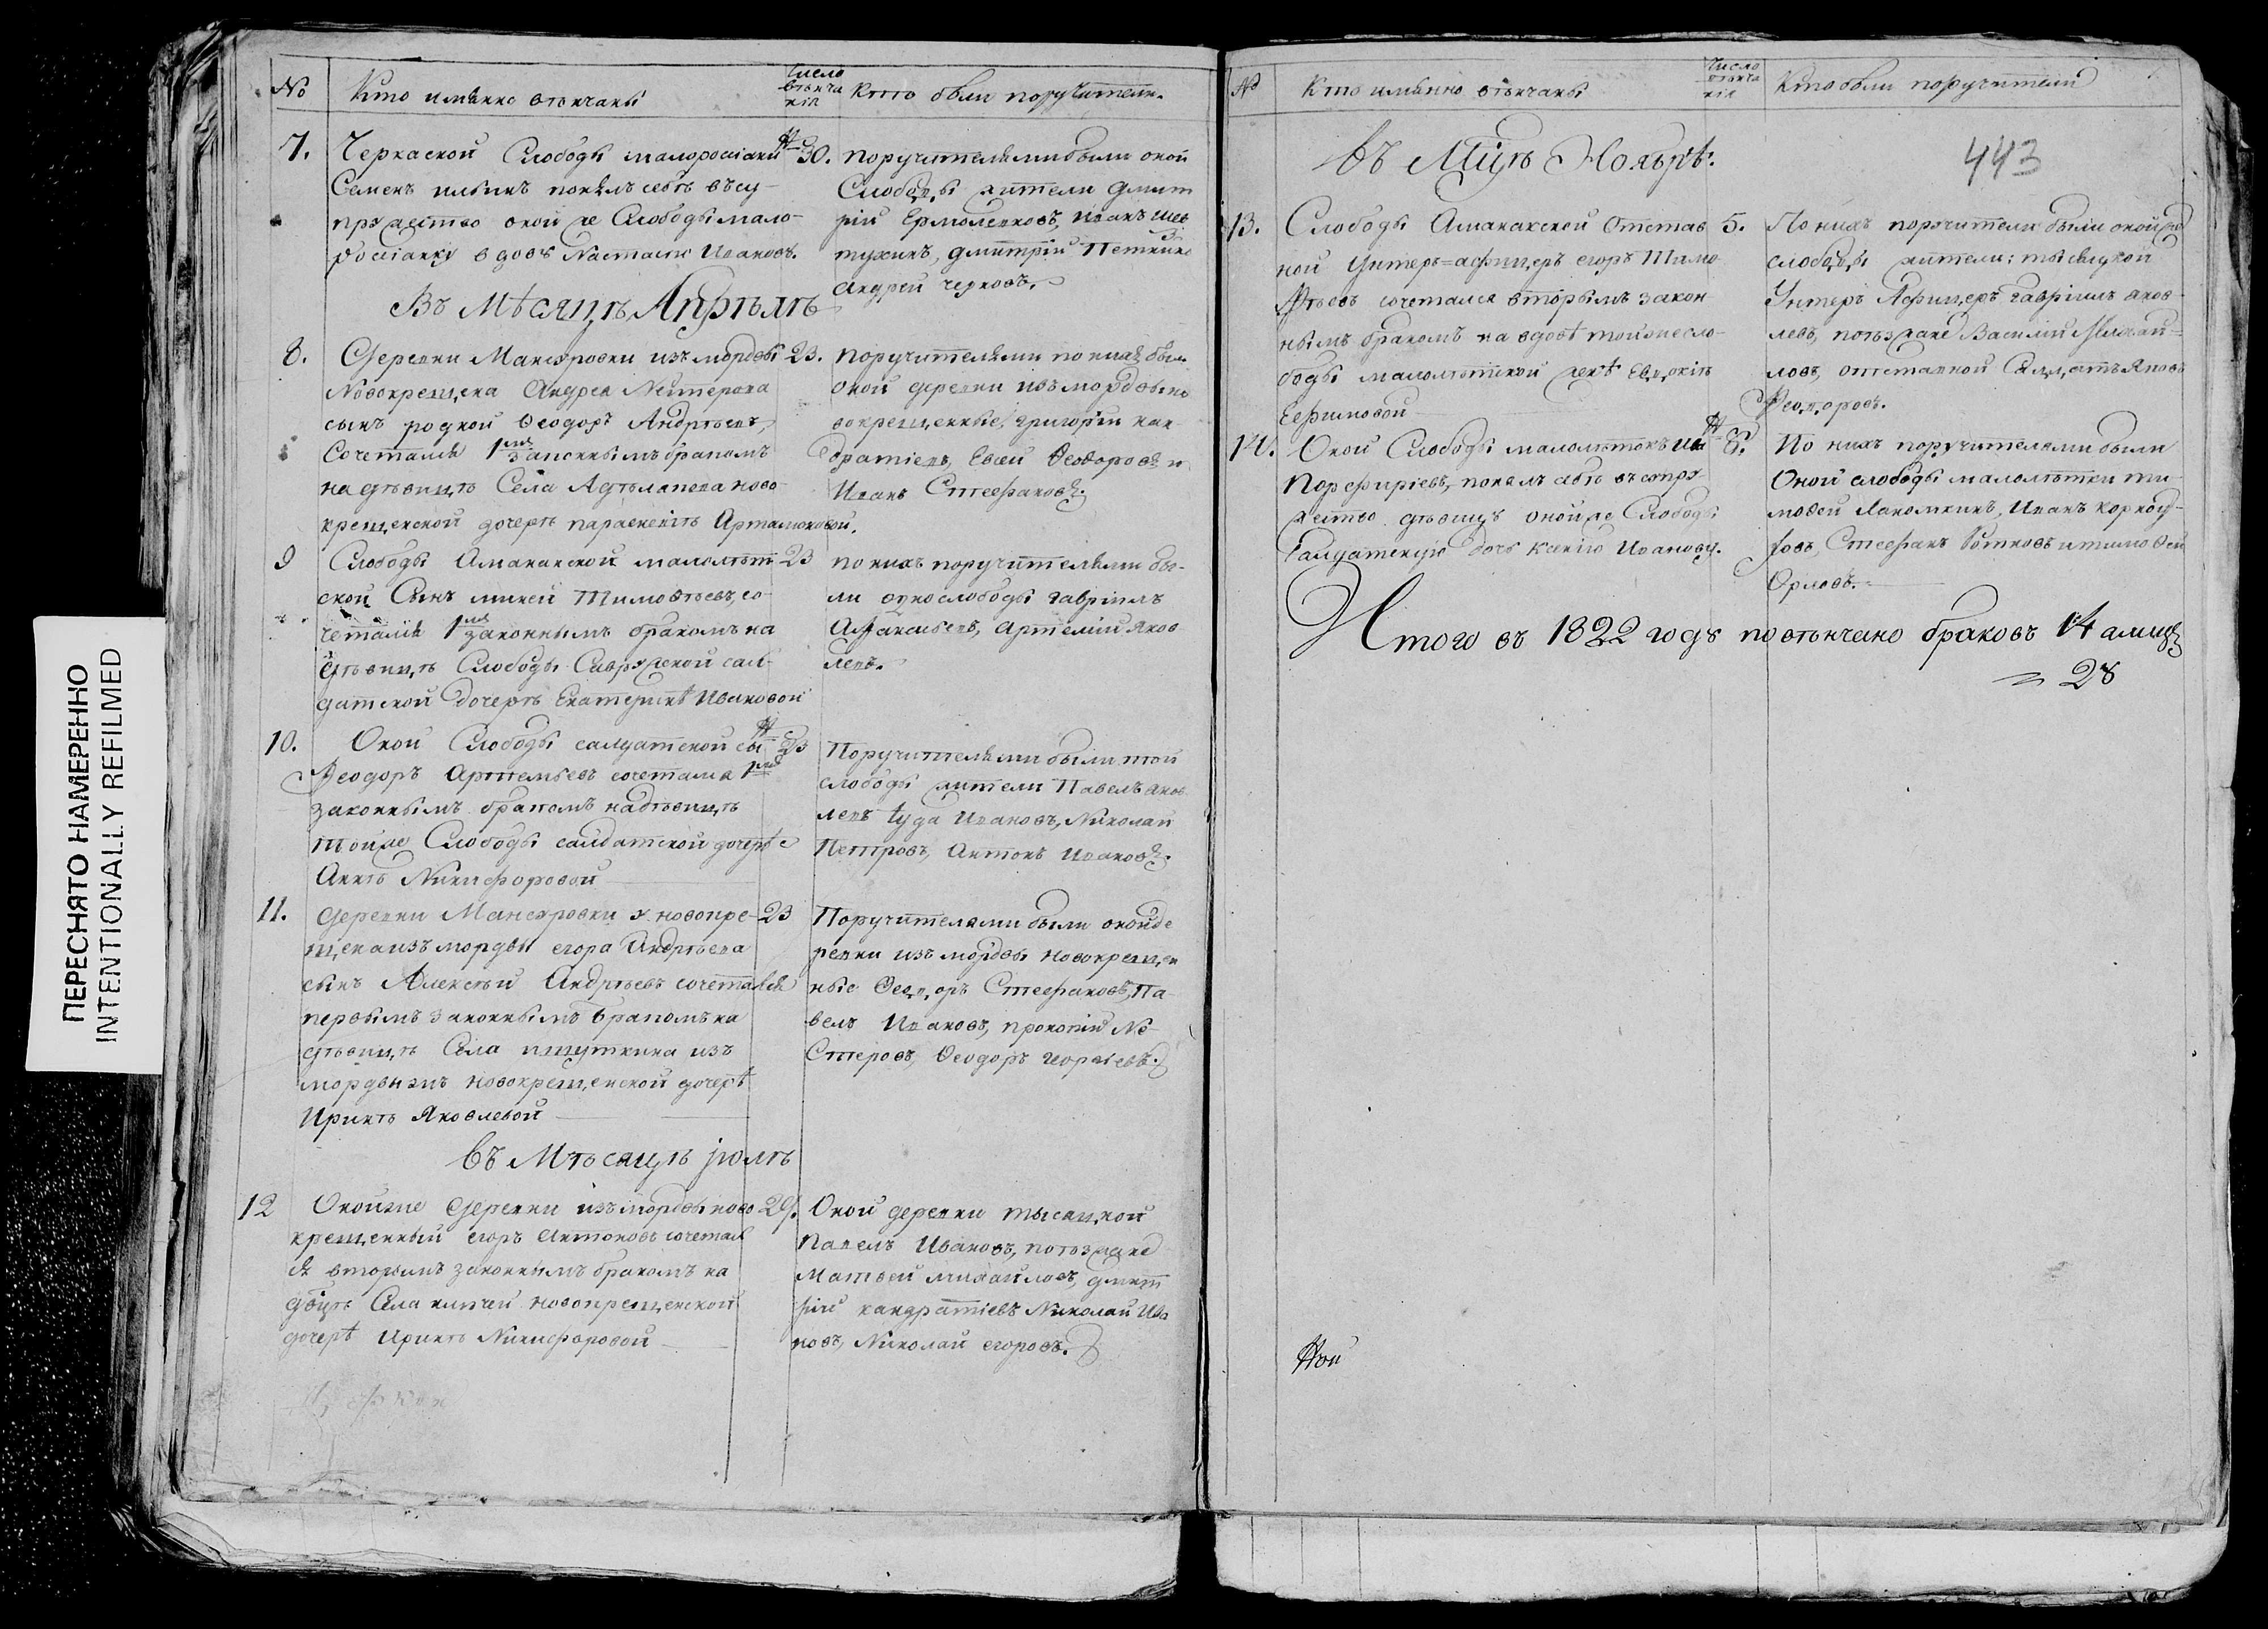 ПЕРЕСНЯТО НАМЕРЕННО
INTENTIONALLY REFILMED
№ Кто имянно вѣнчаны
Число
вѣнча
нія
Кто были поручители.
7. Черкаской Слободы малоросіяни
Семенъ Ильинъ понялъ себѣ въ су-
пружество оной же Слободы мало-
росіянку вдову Настасію Иванову.
30.
поручителями были оной
Слободы жители Дмит
рій Ермоленковъ, Иванъ Шев
тухинъ, Дмитрій
Андрей
Въ Мѣсяцѣ Апрѣлѣ
8. Деревни Мансуровки изъ мордвы
Новокрещена Андрея
сынъ родной Ѳеодоръ Андрѣевъ,
Сочетался 1мъ законнымъ бракомъ
на дѣвицѣ Села ново-
крещенской дочерѣ Параскевіѣ Артамоновой.
23.
поручителями по нихъ были
оной деревни изъ мордвы но
вокрещенные, Григорій Кан-
дратіевъ, Евсей Ѳеодоровъ и
Иванъ Стефановъ.
9 Слободы Аманакской малолѣт
ской Сынъ Тимоѳѣевъ, со-
четался 1мъ законнымъ бракомъ на
дѣвицѣ Слободы Савружской сал-
датской дочерѣ Екатеринѣ Ивановой
23
по нихъ поручителями бы-
ли слободы Гавріилъ
Афанасьевъ, Артемій Яков
левъ.
10. Оной Слободы салдатской сы
Ѳеодоръ Артемьевъ сочетался 1мъ
законнымъ бракомъ на дѣвицѣ
тойже Слободы салдатской дочерѣ
Аннѣ Никифоровой
23
Поручителями были той
слободы жители Павелъ Яков
левъ Іуда Ивановъ, Николай
Петровъ, Антонъ Ивановъ.
11. Деревни Мансуровки у новокре-
щена изъ мордвы Егора Андрѣева
сынъ Алексѣй Андрѣевъ сочетался
первымъ законнымъ бракомъ на
дѣвицѣ Села изъ
мордвы новокрещенской дочерѣ
Иринѣ Яковлевой
23
Поручителями были оной де
ревни изъ мордвы новокрещен
ные Ѳеодоръ Стефановъ, Па-
велъ Ивановъ, Прокопій Не-
стеровъ, Ѳеодоръ Георгіевъ.
Въ Мѣсяцѣ Іюлѣ
12 Онойже Деревни изъ мордвы ново
крещенный Егоръ Антоновъ сочетал
ся вторымъ законнымъ бракомъ на
дѣвицѣ Села Кинчаи новокрещенской
дочерѣ Иринѣ Никифоровой
29.
Оной деревни тысяцкой
Павелъ Ивановъ, поѣзжане
Матвей Михайловъ, Дмит
рій Кандратіевъ Николай Ива
новъ, Николай Егоровъ.
№ Кто имянно вѣнчаны
Число
вѣнча
нія
Кто были поручители
443
Въ Мцѣ Ноябрѣ.
13. Слободы Аманакской Отстав
ной Унтеръ=афицеръ Егоръ Тимо
ѳѣевъ сочетался вторымъ закон
нымъ бракомъ на вдовѣ тойже сло-
боды малолѣтской женѣ Евдокіѣ
Ефимовой
5.
По нихъ поручители были онойже
слободы жители: тысяцкой
Унтеръ Афицеръ Гавріилъ Яков-
левъ, поѣзжане Василій Михай-
ловъ, отставной Салдатъ Яковъ
Ѳеодоровъ.
14. Оной Слободы малолѣтокъ Ива
Порфиріевъ, понялъ себѣ въ супру-
жество дѣвицу онойже Слободы
Салдатскую дочь Ксенію Иванову.
8.
По нихъ поручителями были
Оной слободы малолѣтки Ти-
моѳей Лакомкинъ, Иванъ
Стефанъ и Тимоѳей
Орловъ.
Итого въ 1822 годѣ повѣнчано браковъ 14 а лицъ
= 28